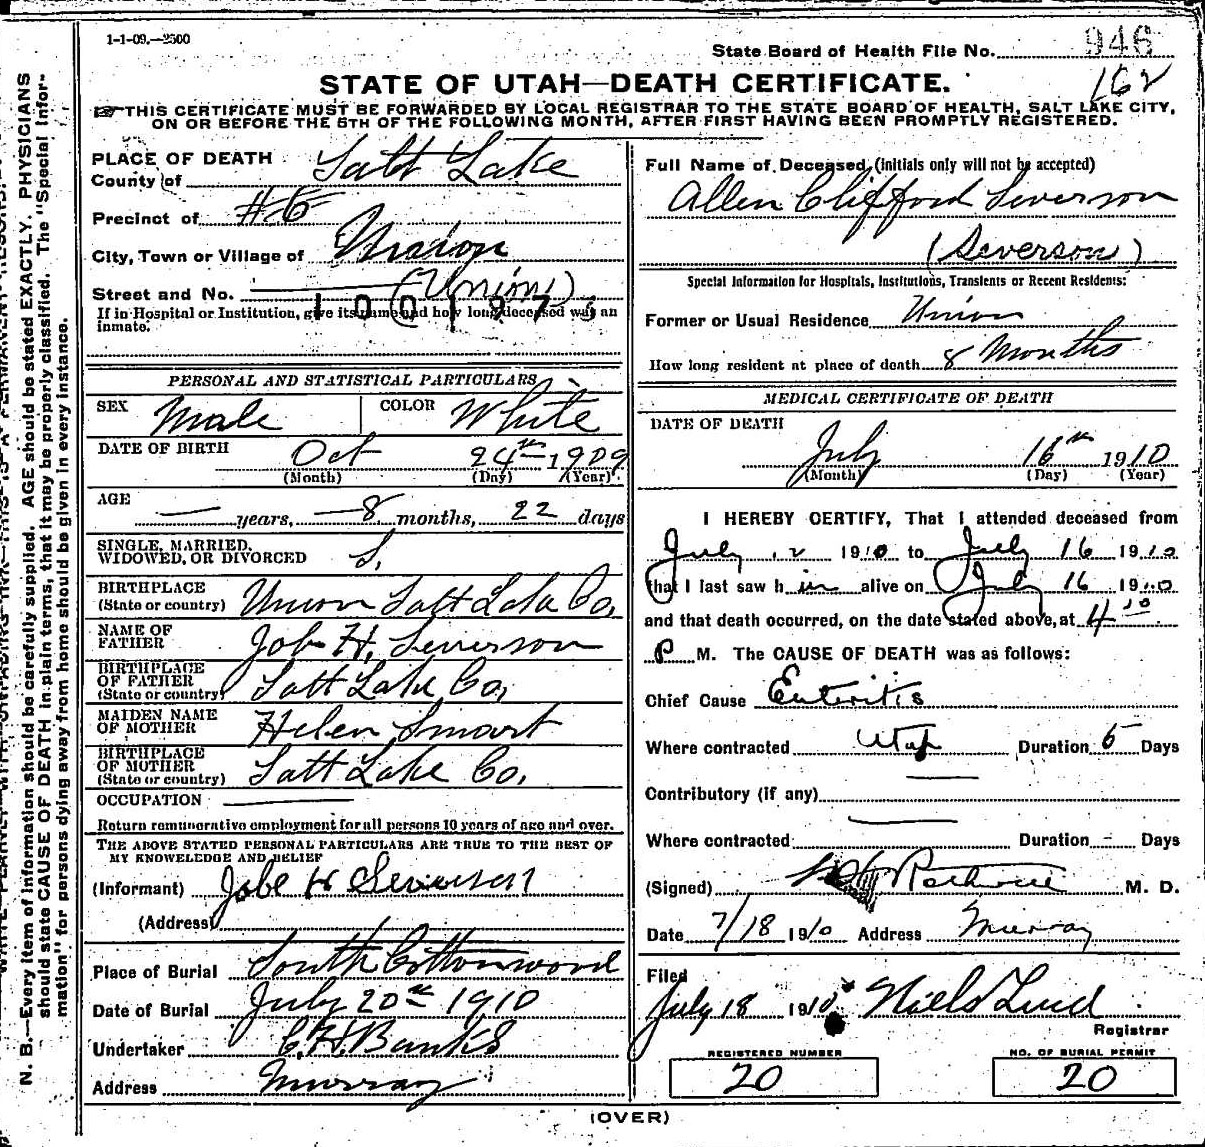 1-1-09.—2500
State Board of Health File No. 946
162
STATE OF UTAH—DEATH CERTIFICATE.
☞THIS CERTIFICATE MUST BE FORWARDED BY LOCAL REGISTRAR TO THE STATE BOARD OF HEALTH, SALT LAKE CITY,
ON OR BEFORE THE 5TH OF THE FOLLOWING MONTH, AFTER FIRST HAVING BEEN PROMPTLY REGISTERED.
PLACE OF DEATH
County of Salt Lake
Precinct of #6
City, Town or Village of Union
Street and No. (Union)
If in Hospital or Institution, give its name and how long deceased was an
inmate.
PERSONAL AND STATISTICAL PARTICULARS
SEX Male COLOR White
DATE OF BIRTH Oct 24th 1909
(Month) (Day) (Year)
AGE — years, 8 months, 22 days
SINGLE, MARRIED,
WIDOWED, OR DIVORCED S.
BIRTHPLACE
(State or country) Union Salt Lake Co.
NAME OF
FATHER Job H. Severson
BIRTHPLACE
OF FATHER
(State or country) Salt Lake Co.
MAIDEN NAME
OF MOTHER Helen Smart
BIRTHPLACE
OF MOTHER
(State or country) Salt Lake Co.
OCCUPATION —
Return remunerative employment for all persons 10 years of age and over.
THE ABOVE STATED PERSONAL PARTICULARS ARE TRUE TO THE BEST OF
MY KNOWELEDGE AND BELIEF
(Informant) Jobe H Severson
(Address)
Place of Burial South Cottonwood
Date of Burial July 20th 1910
Undertaker C.H. Banks
Address Murray
Full Name of Deceased, (initials only will not be accepted)
Allen Clifford Severson
(Severson)
Special Information for Hospitals, Institutions, Transients or Recent Residents:
Former or Usual Residence Union
How long resident at place of death 8 Months
MEDICAL CERTIFICATE OF DEATH
DATE OF DEATH
July 16th 1910
(Month) (Day) (Year)
I HEREBY CERTIFY, That I attended deceased from
July 12 1910 to July 16 1910
that I last saw him alive on July 16 1910
and that death occurred, on the date stated above, at 4 10
P M. The CAUSE OF DEATH was as follows:
Chief Cause Enteritis
Where contracted Utah Duration 5 Days
Contributory (if any) —
Where contracted — Duration - Days
(Signed) M. D.
Date 7/18 1910 Address Murray
Filed
July 18 1910 Niels Lind
Registrar
REGISTERED NUMBER
20
NO. OF BURIAL PERMIT
20
(OVER)
N. B.—Every item of information should be carefully supplied. AGE should be stated EXACTLY. PHYSICIANS
should state CAUSE OF DEATH in plain terms, that it may be properly classified. The "Special Infor-
mation" for persons dying away from home should be given in every instance.